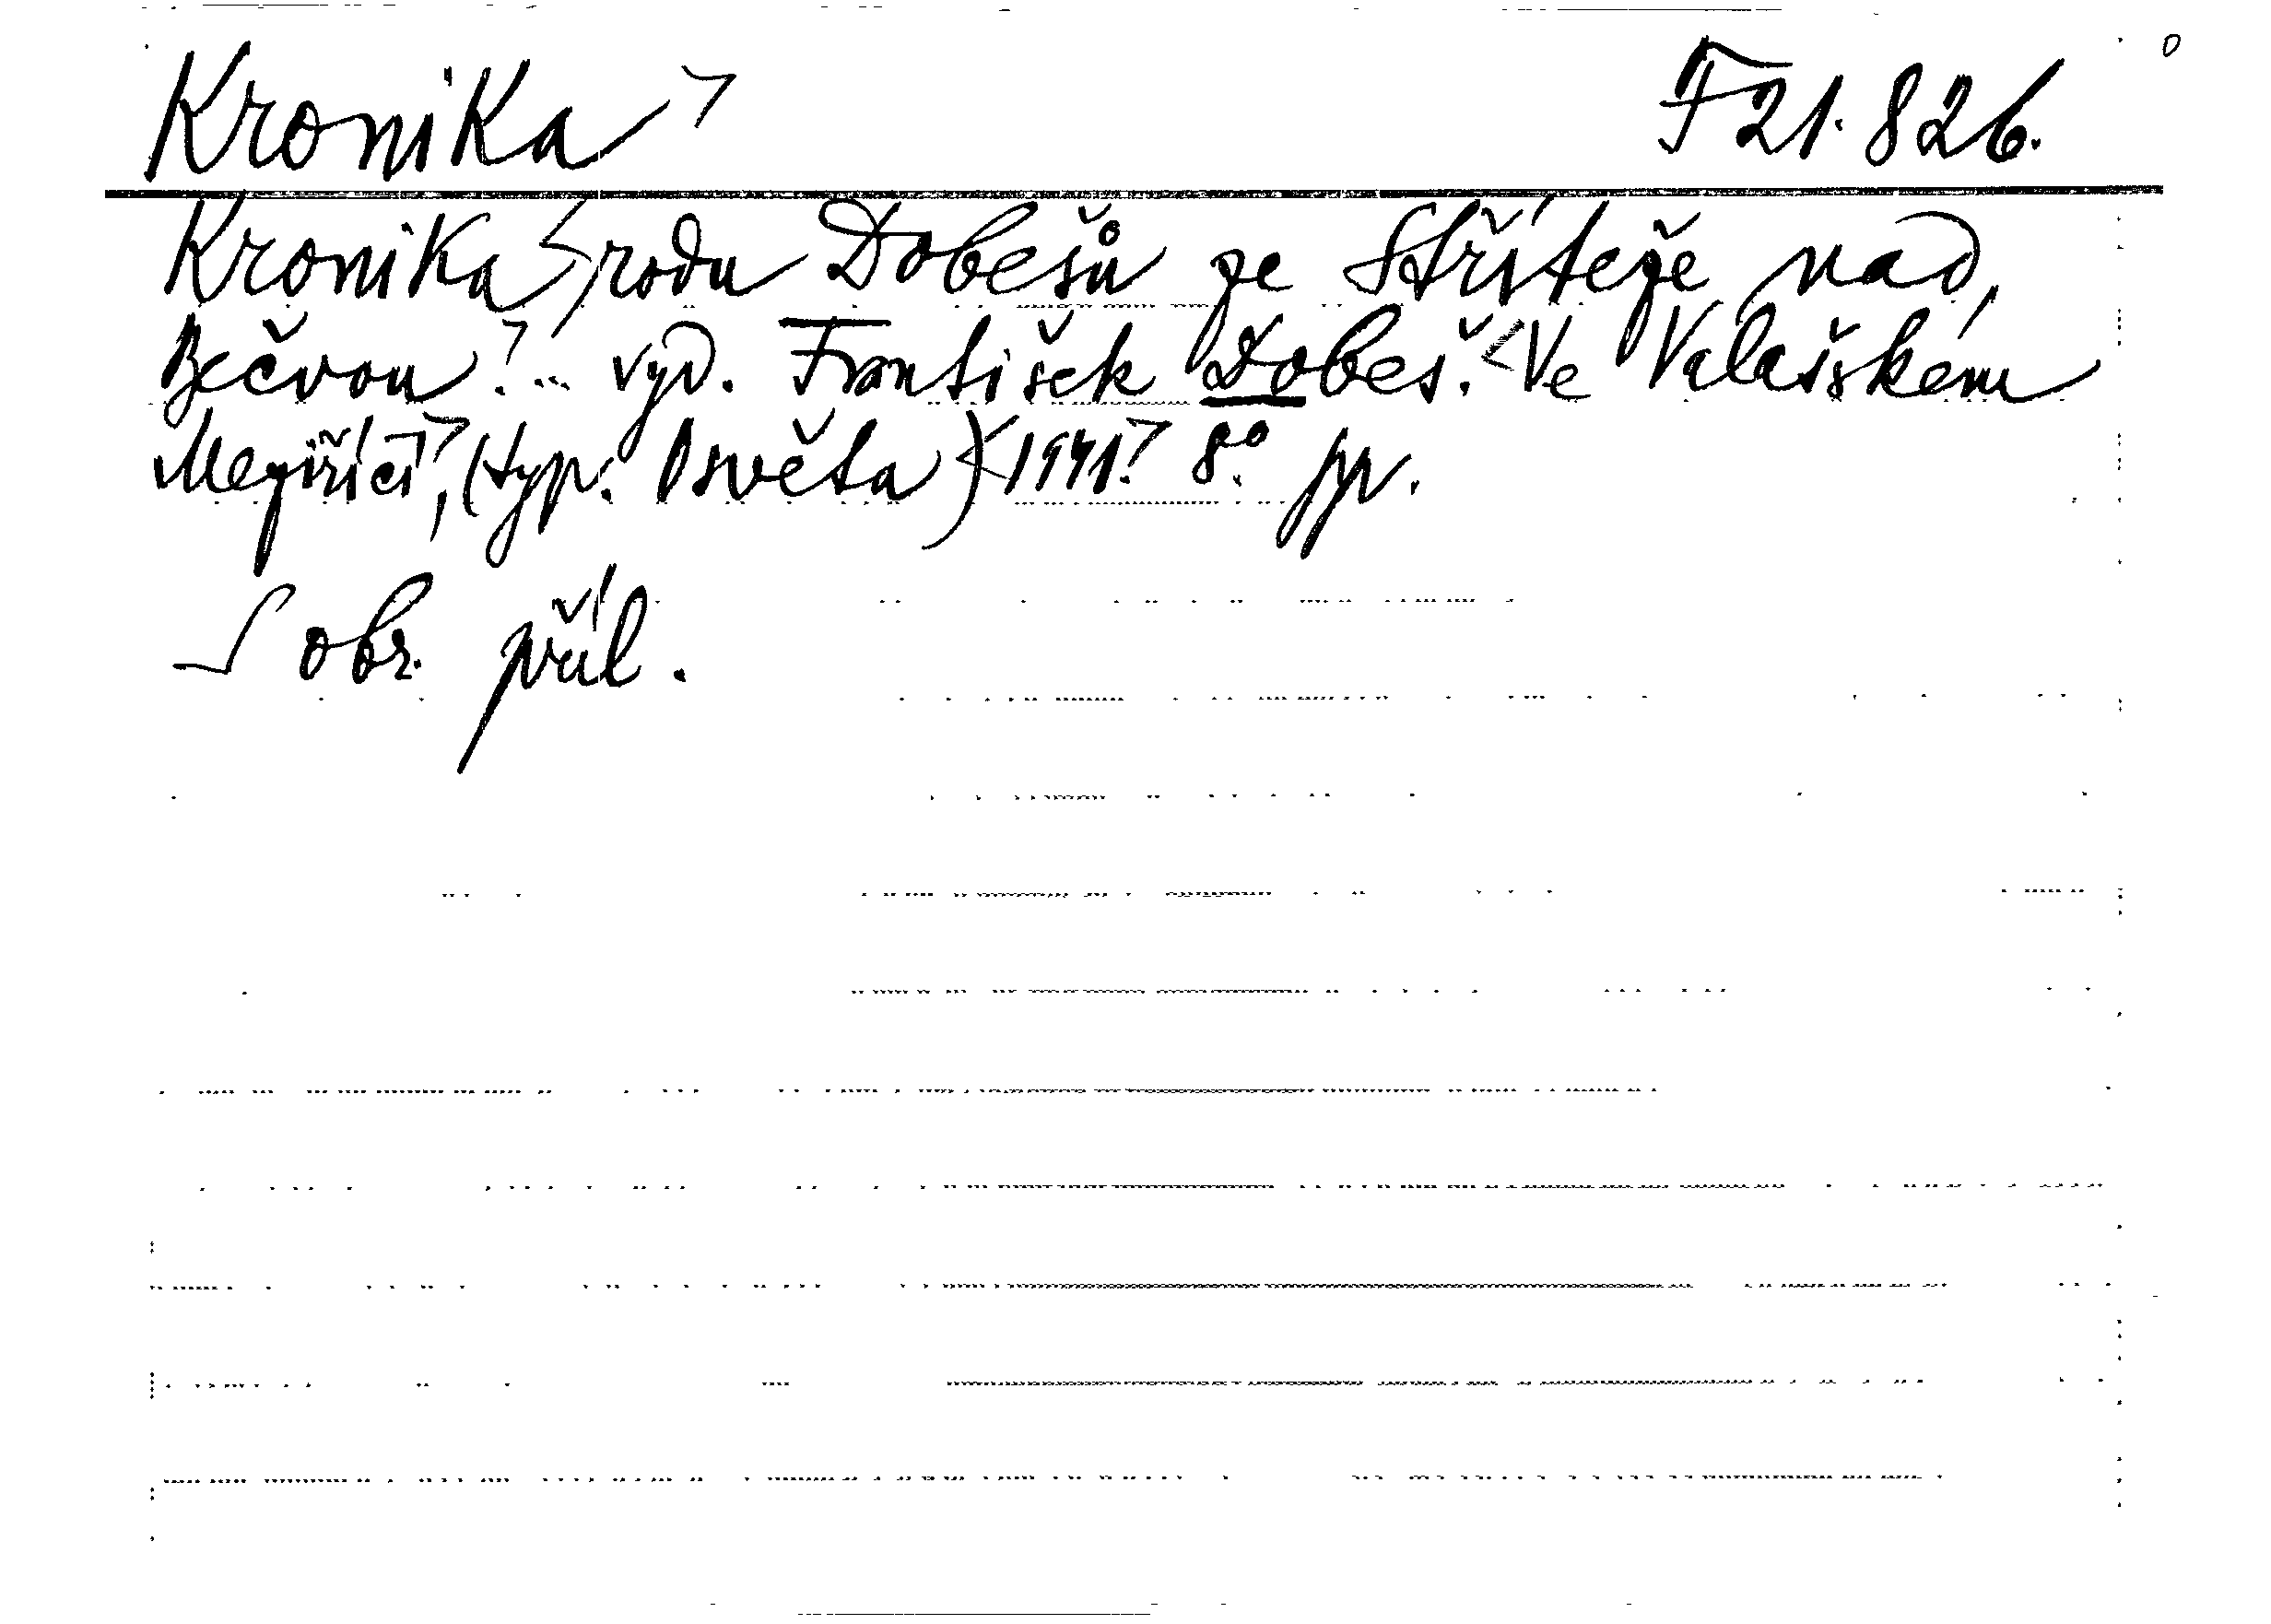 Kronika F 21.826.
Kronika rodu Dobešů ze Stříteže nad
Bečvou. ... vyd. František Dobeš. Ve Valašském
Meziříčí, (typ. Osvěta) 1941. 8° pv.
S obr. příl.